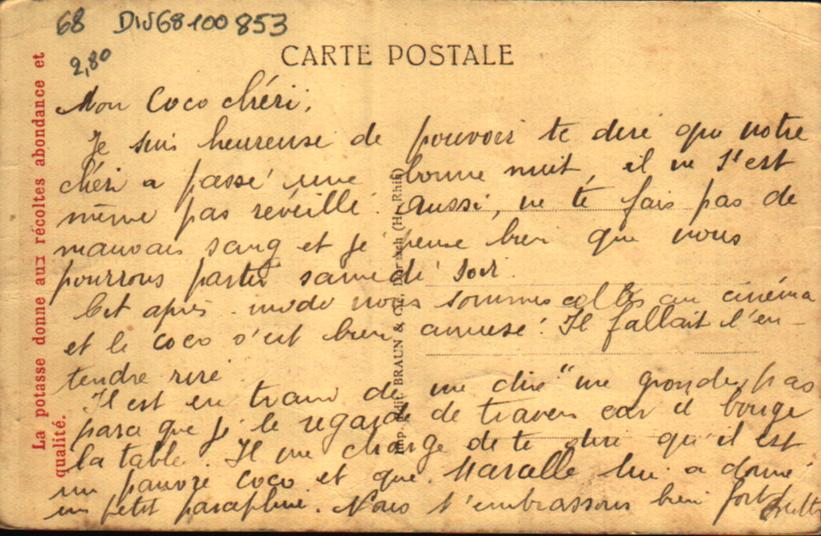 68 DIV68100853
2,80
CARTE POSTALE
Mon Coco chéri,
Je suis heureuse de pouvoir te dire que notre
chéri a passé une bonne nuit, il ne s'est
même pas réveillé. Aussi, ne te fais pas de
mauvais sang et je pense bien que nous
pourrons partir samedi soir.
Cet après-midi nous sommes allés au cinéma
et le coco s'est bien amusé! Il fallait l'en-
tendre rire.
Il est en train de me dire "me gronde pas
parce que je le regarde de travers car il bouge
la table. Il me charge de te dire qu'il est
un pauvre coco et que lui a donné
un petit parapluie. Nous t'embrassons bien fort
La potasse donne aux récoltes abondance et
qualité.
Imp. Édit. BRAUN & Cie, Dornach (Ht-Rhin)